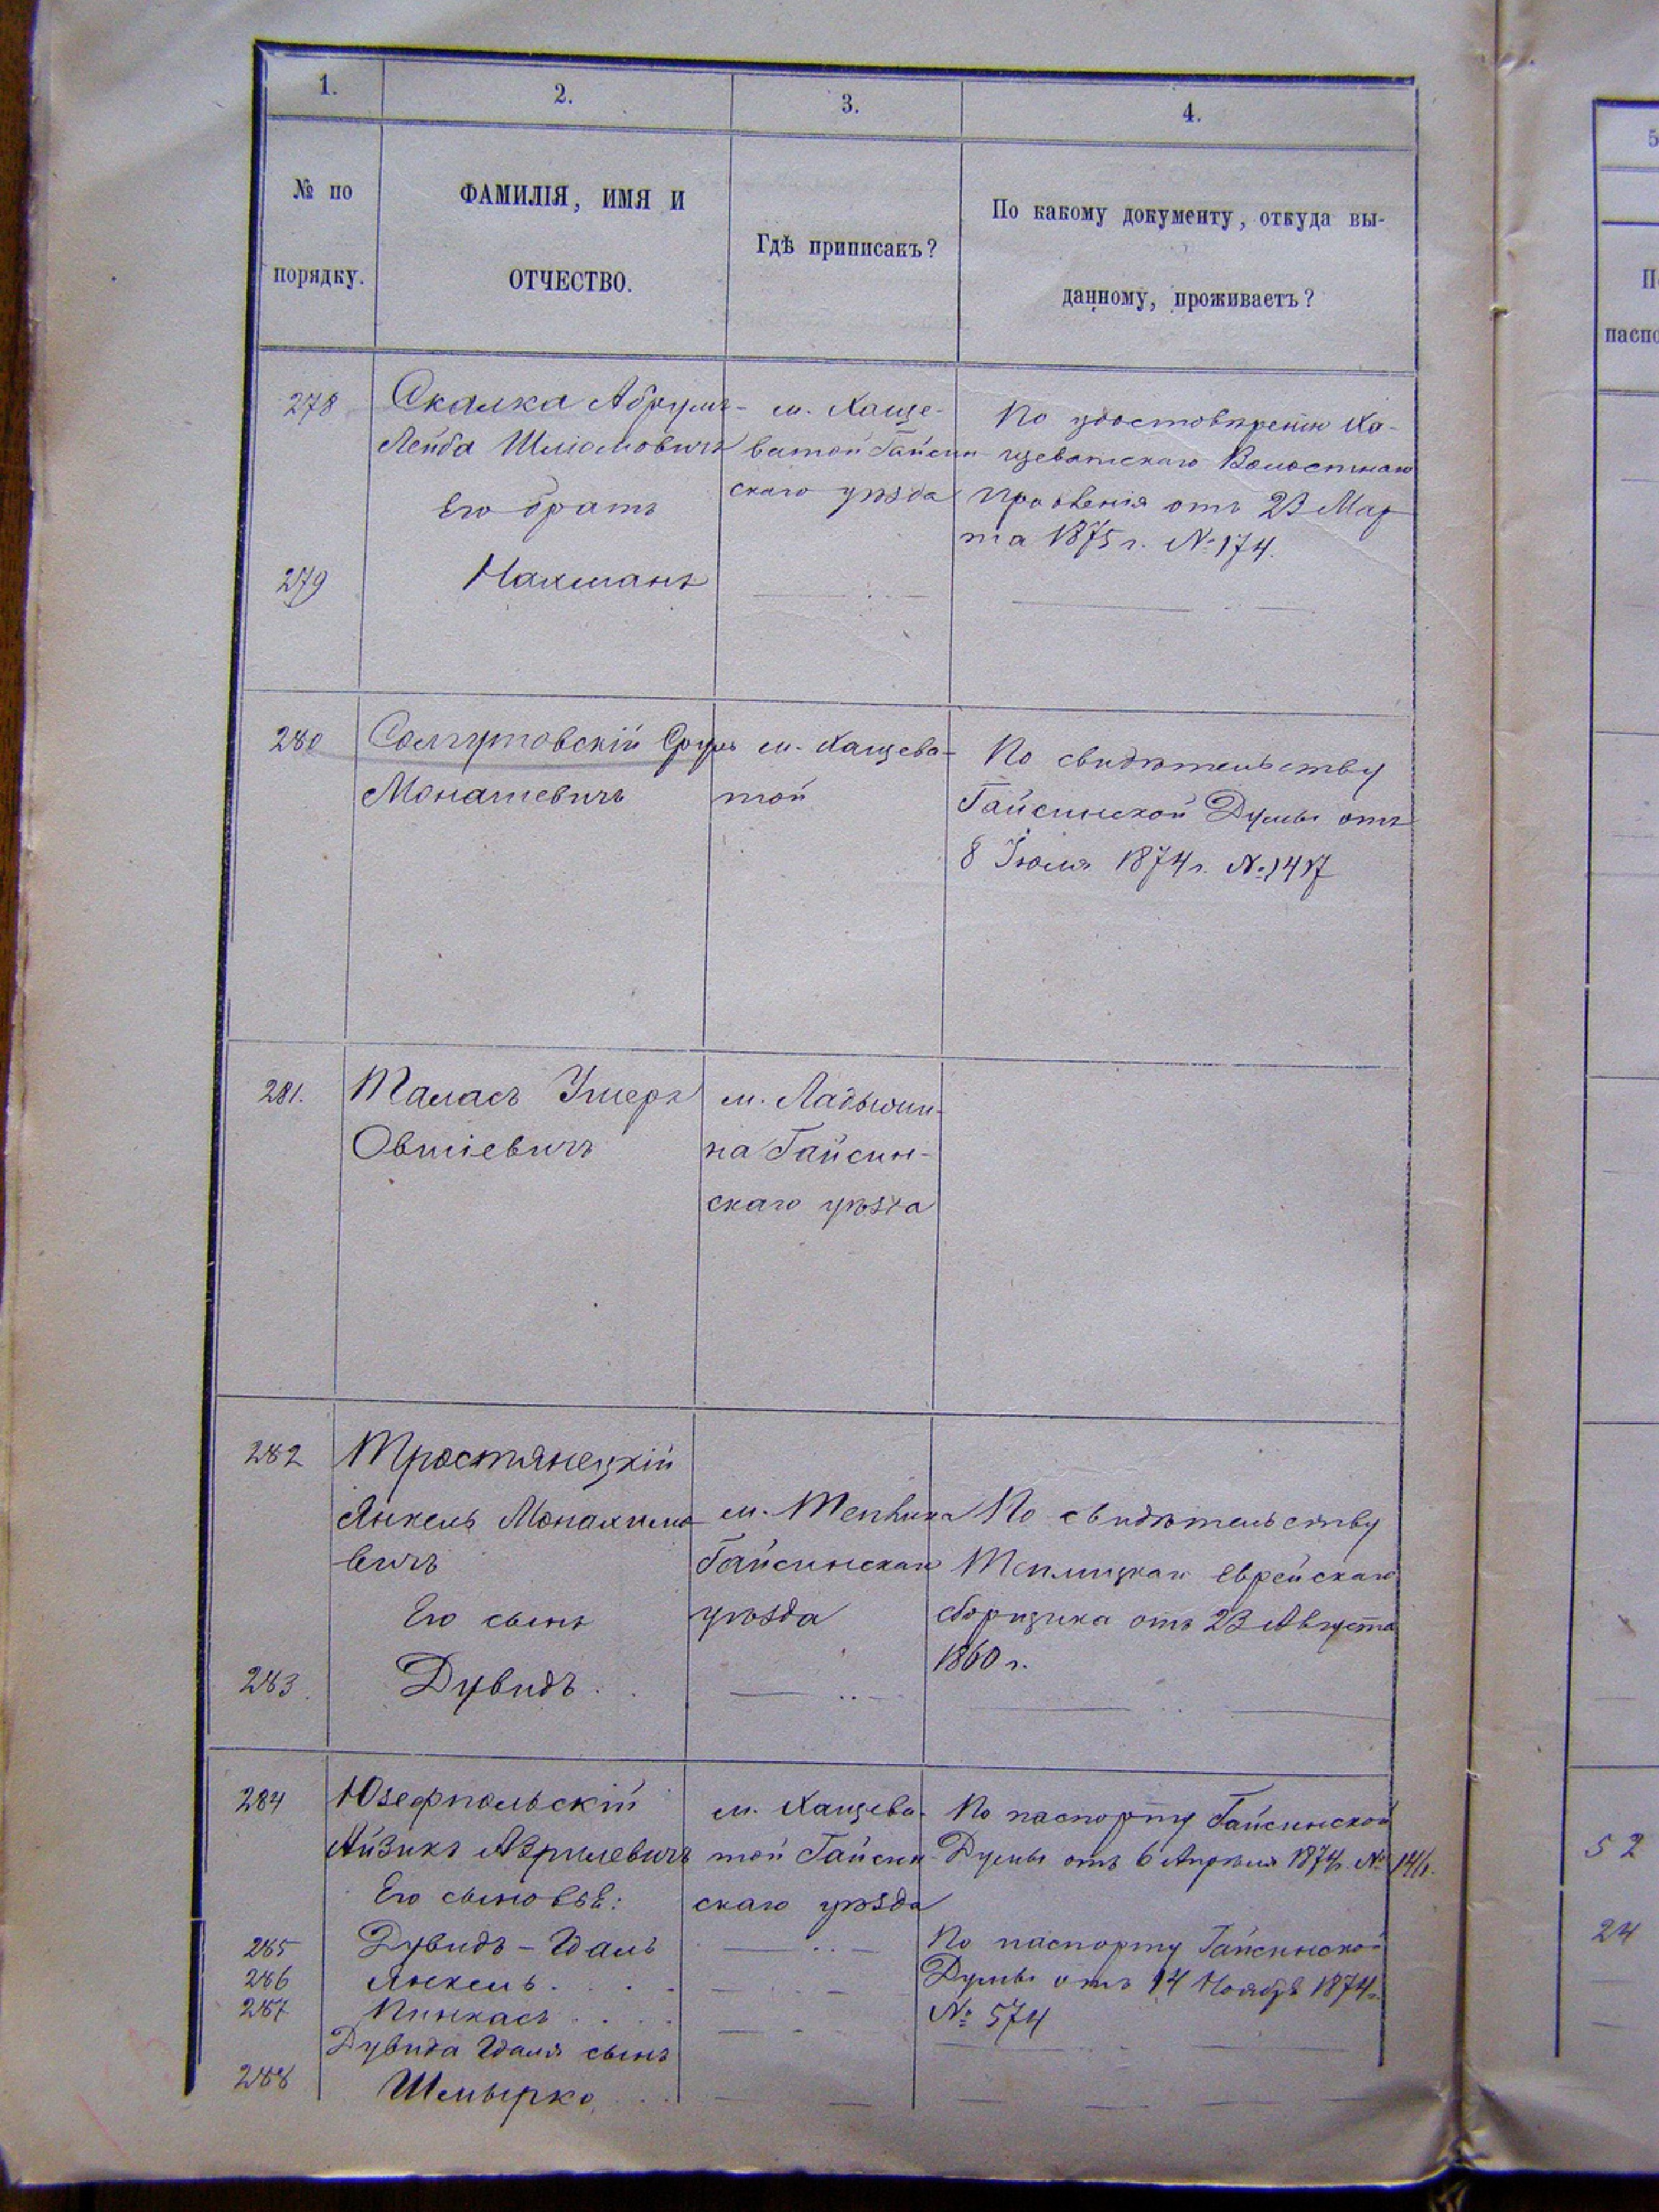 1.
2.
3.
4.
№ по
порядку.
ФАМИЛІЯ, ИМЯ И
ОТЧЕСТВО.
Гдѣ приписанъ?
По какому документу, откуда вы-
данному, проживаетъ?
278
Скалка Абрумъ-
Лейба Шліомовичъ
м. Хаще-
ватой Гайсин
скаго уѣзда
По удостовѣренію Ха-
щеватскаго Волостнаго
Правленія отъ 23 Мар
та 1875 г. № 174.
Его братъ
279
Нахманъ
280
Солгутовскій Сруль
Монашевичъ
м. Хащева-
той
По свидѣтельству
Гайсинской Думы отъ
8 Іюля 1874 г. № 1417
281.
Таласъ Ушеръ
Овшіевичъ
м. Ладыжин-
на Гайсин-
скаго уѣзда
282
Тростянецкій
Янкель Монахимо
вичъ
м. Теплика
Гайсинскаго
уѣзда
По свидѣтельству
Теплицкаго Еврейскаго
сборщика отъ 23 Августа
1860 г.
Его сынъ
283.
Дувидъ . .
284
Юзефпольскій
Айзикъ Азрилевичъ
м. Хащева-
той Гайсин
скаго уѣзда
По паспорту Гайсинской
Думы отъ 6 Апрѣля 1874 г. №
Его сыновьѣ:
285
Дувидъ-Идаль
По паспорту Гайсинской
Думы отъ 14 Ноября 1874 г.
№ 574
286
Янкель . . . .
287
Пинкасъ . . . .
Дувида Идаля сынъ
288
Шмырко . . .
5
П
паспо
52
24